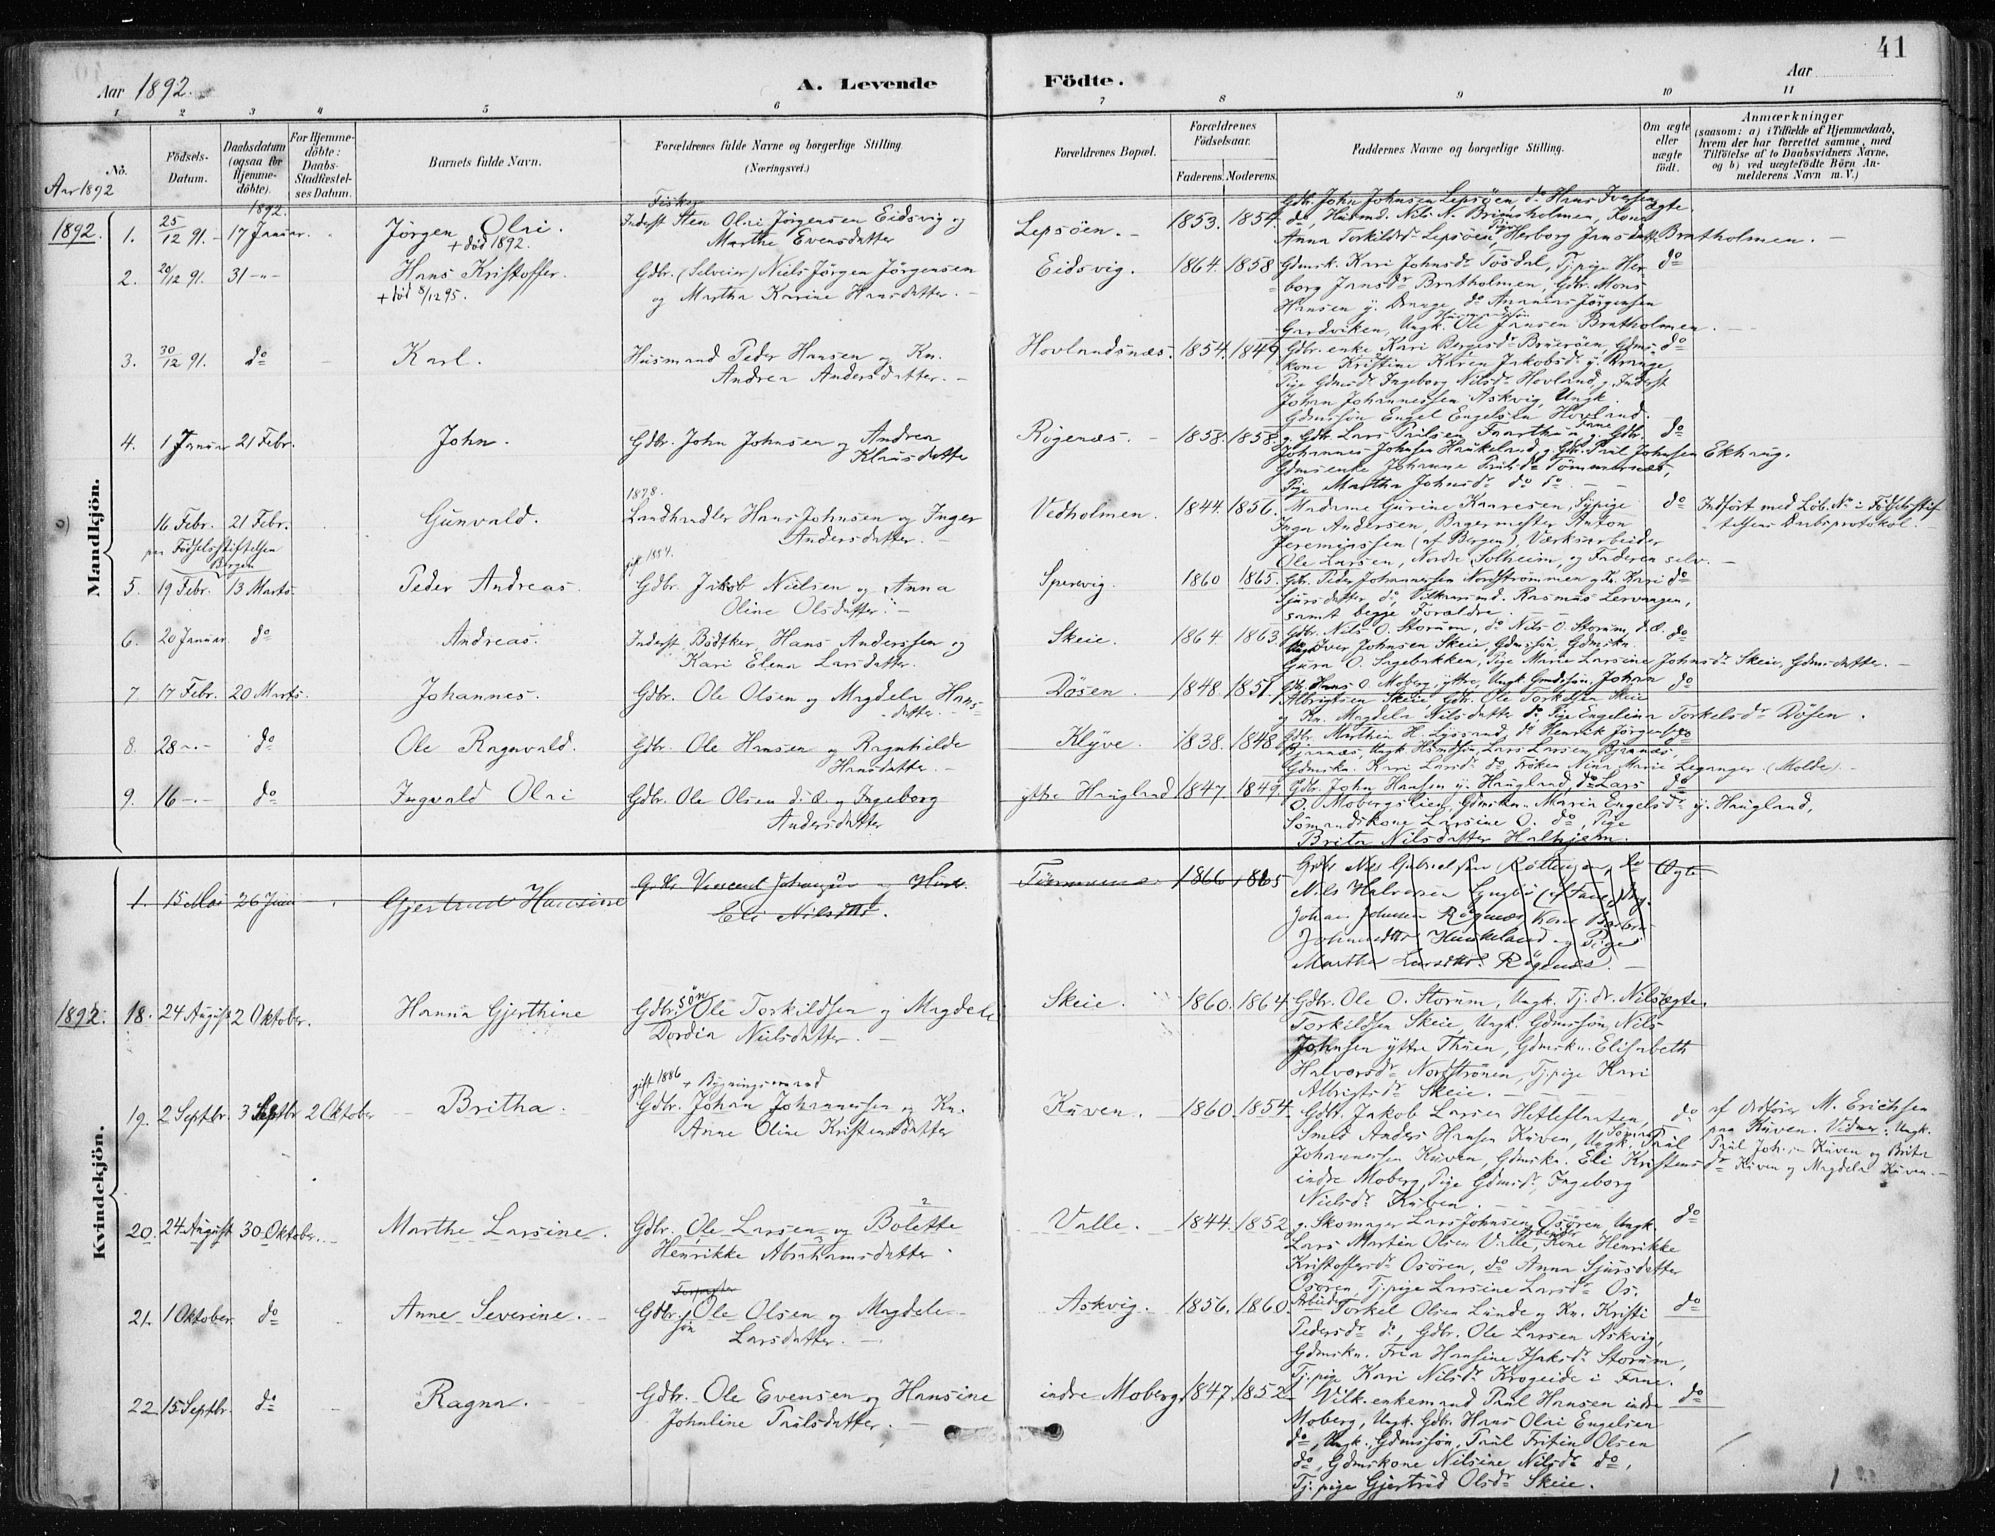 41
Aar 1892.
A. Levende Födte.
Aar
1 2 3 4 5 6 7 8 9 10 11
No.
Födsels-Datum.
Daabsdatum (ogsaa for Hjemme-döbte).
For Hjemme-döbte: Daabs-Stadfæstel-ses Datum.
Barnets fulde Navn.
Forældrenes fulde Navne og borgerlige Stilling (Næringsvei.)
Forældrenes Bopæl.
Forældrenes Födselsaar.
Faderens. Moderens.
Faddernes Navne og borgerlige Stilling.
Om ægte eller uægte födt.
Anmærkninger
(saasom: a) i Tilfælde af Hjemmedaab, hvem der har forrettet samme, med Tilföielse af to Daabsvidners Navne, og b) ved uægtefödte Börn An-melderens Navn m. V.)
Aar 1892
1892.
Mandkjön.
1892. 1. 25/12 91. 17 Januar. Jörgen Olai. Fisker
+ död 1892. Inderst Sten Olai Jörgensen Eidsvig og
Marthe Evensdatter Lepsöen. 1853. 1854. Gdbr. John Johnsen Lepsöen, do Hans Iversen ægte.
do, Husmd. Nils N. Brimsholmen, Kone
Anna Torkildsdr Lepsöen, Pige Herborg Jansdatt. Bratholmen.
2. 20/12 91. 31 -"- Hans Kristoffer.
+ död 8/12 95. Gdbr. (Selveier) Niels Jörgen Jörgensen
og Martha Karine Hansdatter. Eidsvig. 1864. 1858 Gdmsk. Kari Johnsdr Tösdal, Tj.pige Her-
borg Jansdr Bratholmen, Gdbr. Mons
Hansen y. Drange, do Ananias Jörgensen
Gardviken, Ungk. Husmandssön Ole Jansen Bratholmen. do
3. 30/12 91. do Karl. Husmand Peder Hansen og Kn.
Andrea Andersdatter. Hovlandsnæs. 1854. 1849. Gdbr. enke Kari Bergesdr Brueröen, Gdms- do
kone Kristine Karen Jakobsdr y. Drange,
Pige Gdmsdr Ingeborg Nilsdr Hovland, g. Inderst
Johan Johannessen Askvig, Ungk.
Gdmssön Engel Engelsen Hovland.
4. 1 Januar 21 Febr. John. Gdbr. John Johnsen og Andrea
Klausdatter Rögenæs. 1858. 1858. g. Gdbr. Lars Paulsen Fane, g. Gdbr. do
Johannes Johnsen Haukeland, g. Gbr. Paul Johnsen Ekhaug,
Gdmsenke Johanne Paulsdr Tömmernæs,
Pige Martha Johnsdr do do
16 Febr. 21 Febr.
paa Födselsstiftelsen
Bergen Gunvald. 1878.
Landhandler Hans Johnsen og Inger
Andersdatter. Vedholmen. 1844. 1856. Madame Gurine Knaresen, Sypige do
Inga Andersen, Bagermester Anton
Jeremiassen (af Bergen), Værksarbeider
Ole Larsen, Nordre Solheim, og Faderen selv. Indfört med Löb. No i Födselsstif-
telsens Daabsprotokol.
5. 19 Febr. 13 Marts. Peder Andreas. gift 1884.
Gdbr. Jakob Nielsen og Anna
Oline Olsdatter. Sperevig. 1860 1865. Gbr. Peder Johannessen Nordströnmen g. Kn. Kari do
Sjursdatter, do, Vilkaarsmd. Rasmus Lervaagen,
samt begge Forældre.
6. 20 Januar. do Andreas. Inderst Bödtker Hans Anderssen og
Kari Elena Larsdatter. Skeie. 1864. 1863. Gdbr. Nils O. Storum, do Nils O. Storum, d.æ. do
Ungk. Iver Johnsen Skeie, Gdmssön, Gdmskn.
Guro O. Sagebakken, Pige Marie Larsine Johnsdr Skeie, Gdmsdatter.
7 17 Febr. 20 Marts. Johannes. Gdbr. Ole Olsen og Magdela Hans-
datter. Dösen. 1848. 1851. Gdbr. Hans O. Moberg, yttre, Ungk. Gmdssön, Johan do
Albrigtsen Skeie, Gdbr. Ole Torkelsen Skeie
og Kn. Magdela Nilsdatter do, Pige Engelina Torkelsdr Dösen.
8. 28 -"- do Ole Ragnvald. Gdbr. Ole Hansen og Ragnhilde
Hansdatter. Klyve. 1838. 1848. Gdbr. Marthin H. Lyssand, do Henrik Jörgensen do
Bjaanæs, Ungk. Husmdssön, Lars Larsen Bjaanæs,
Gdmskn. Kari Larsdr do, Fröken Nina Marie Leganger (Molde).
9. 16 -"- do Ingvald Olai Gdbr. Ole Olsen d. æ. og Ingeborg
Andersdatter yttre Haugland 1847. 1849. Gdbr. John Hansen y. Haugland, do Lars do
O. Mobergslien, Gdmskn. Maria Engelsdr y. Haugland,
Sömandskone Larsine O. do, Pige
Brita Nilsdatter Halhjem.
Kvindekjön.
1. 15 Mai 26 Juni Gjertrud Hansine Gdbr. Vincent Johansen og Hust.
Eli Nilsdttr. Tömmernæs. 1866. 1865 Gdbr. Nils Gabrielsen Röttingen, do Ægte
Nils Halvorsen Lyngbö (af Fane) Ung.
Johan Johnsen Rögenæs, Kone Barbra
Johannesdttr Haukeland og Pige
Martha Larsdttr. Rögenæs.
1892. 18. 24 August 2 Oktober. Hanna Gjerthine Gdbr. sön Ole Torkildsen og Magdela
Dordia Nielsdatter. Skeie. 1860. 1864 Gdbr. Ole O. Storum, Ungk. Tj. dr. Nils ægte.
Torkildsen Skeie, Ungk. Gdmssön, Nils
Johnsen yttre Thuen, Gdmskn. Elisabeth
Halvorsdr Nordströnen, Tj.pige Kari
Albrigtsdr Skeie.
19. 2 Septbr. 3 Septbr 2 Oktober Britha. gift 1886 + Bygningsmand
Gdbr. Johan Johannessen og Kn.
Anne Oline Kristensdatter Kuven. 1860. 1854. Gdbr. Jakob Larsen Hetleflaaten, do
Smed Anders Hansen Kuven, Ungk. Sömand Paul
Johannessen Kuven, Gdmskn. Eli Kristensdr
indre Moberg, Pige Gdmsdr, Ingeborg
Nielsdr Kuven. af Ordförer M. Erichsen
paa Kuven. Vidner: Ungk.
Paul Joh.n Kuven og Brita
Kuven og Magdela Kuven.
20. 24 August 30 Oktober. Marthe Larsine. Gdbr. Ole Larsen og Bolette
Henrikke Abrahamsdatter Valle. 1844. 1852 g. Skomager Lars Johnsen Osören, Ungk. do
Lars Martin Olsen Valle, Kone Henrikke
Kristoffersdr Osören, do Anna Sjursdatter
Osören, Tj.pige Larsine Larsdr Os.
21. 1 Oktober. do Anne Severine. Forpagter
Gdbr. sön Ole Olsen og Magdele
Larsdatter. Askvig. 1856. 1860. Arbeider Torkel Olsen Lunde g. Kn. Kristi do
Pedersdr do, Gdbr. Ole Larsen Askvig,
Gdmskn. Hansine Isaksdr Storum,
Tj.pige Kari Nilsdr Krogeide i Fane.
22 15 Septbr. do Ragna. Gdbr. Ole Evensen og Hansine
Johnline Paulsdatter. indre Moberg 1847. 1852 Vilk. enkemand Paul Hansen indre do
Moberg, Ungk. Gdbr. Hans Olai Engelsen
do, Ungk. Gdmssön, Paul Fritin Olsen
do, Gdmskone Nilsine Nilsdr do,
Tj.pige Gjertrud Olsdr Skeie.